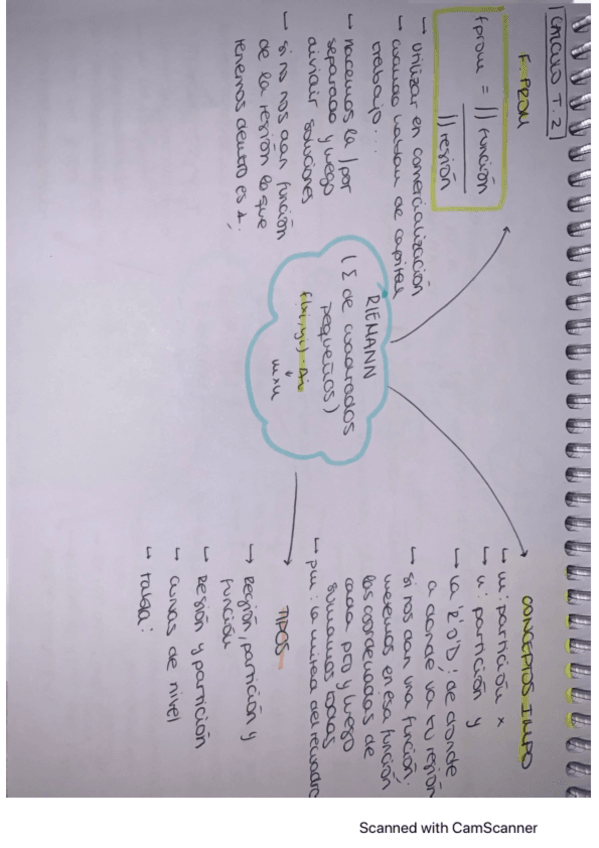 TEMARIO T.2
F. PROM
fprom = ∬ función
∬ región
→ utilizar en comercialización
→ cuando hablan de capital
trabajo...
→ hacemos la ∫ por
separado y luego
dividir soluciones
→ si no nos dan función
de la región lo que
tenemos dentro es 1.
RIEMANN
(Σ de cuadrados
pequeños)
f(xi,yi)·Ai
↓
m×n
CONCEPTOS IMPO
→ m: partición x
→ n: partición y
a donde va tu región
→ si nos dan una función:
metemos en esa función
las coordenadas de
cada pto y luego
sumamos todas
→ pm: la mitad del recuadro
TIPOS
→ Región, partición y
función
→ Región y partición
→ curvas de nivel
→ tabla:
Scanned with CamScanner